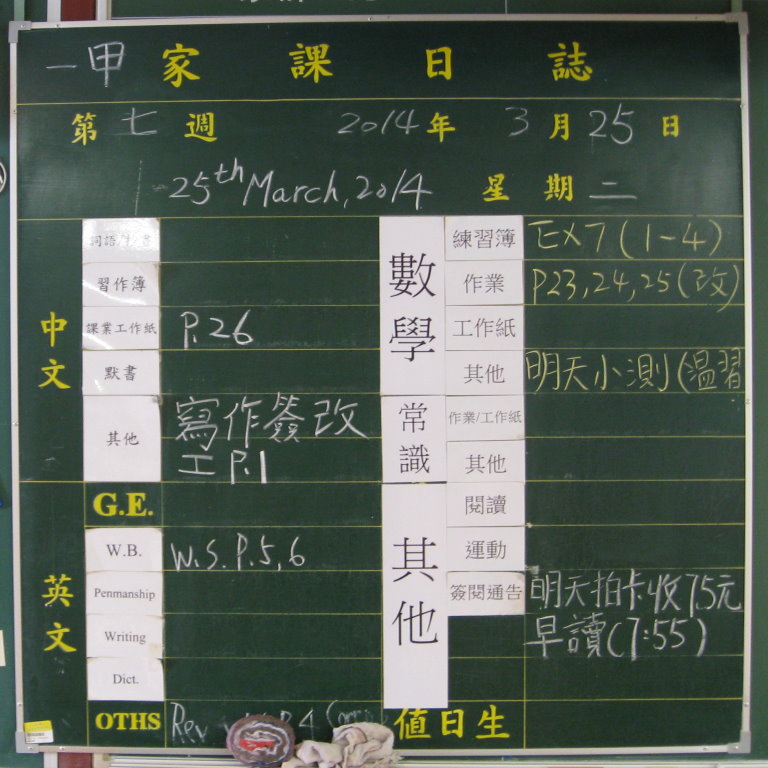 一甲 家課日誌
第七週 2014年3月25日
25th March, 2014 星期二
中文
習作簿
課業工作紙 P.26
默書
其他 寫作簽改
工P.1
英文
G.E.
W.B. W.S. P.5,6
Penmanship
Writing
Dict.
OTHS Rev
數學
練習簿 Ex7 (1-4)
作業 P23,24,25(改)
工作紙
其他 明天小測(溫習
常識
作業/工作紙
其他
其他
閱讀
運動
簽閱通告 明天拍卡收75元
早讀(7:55)
值日生